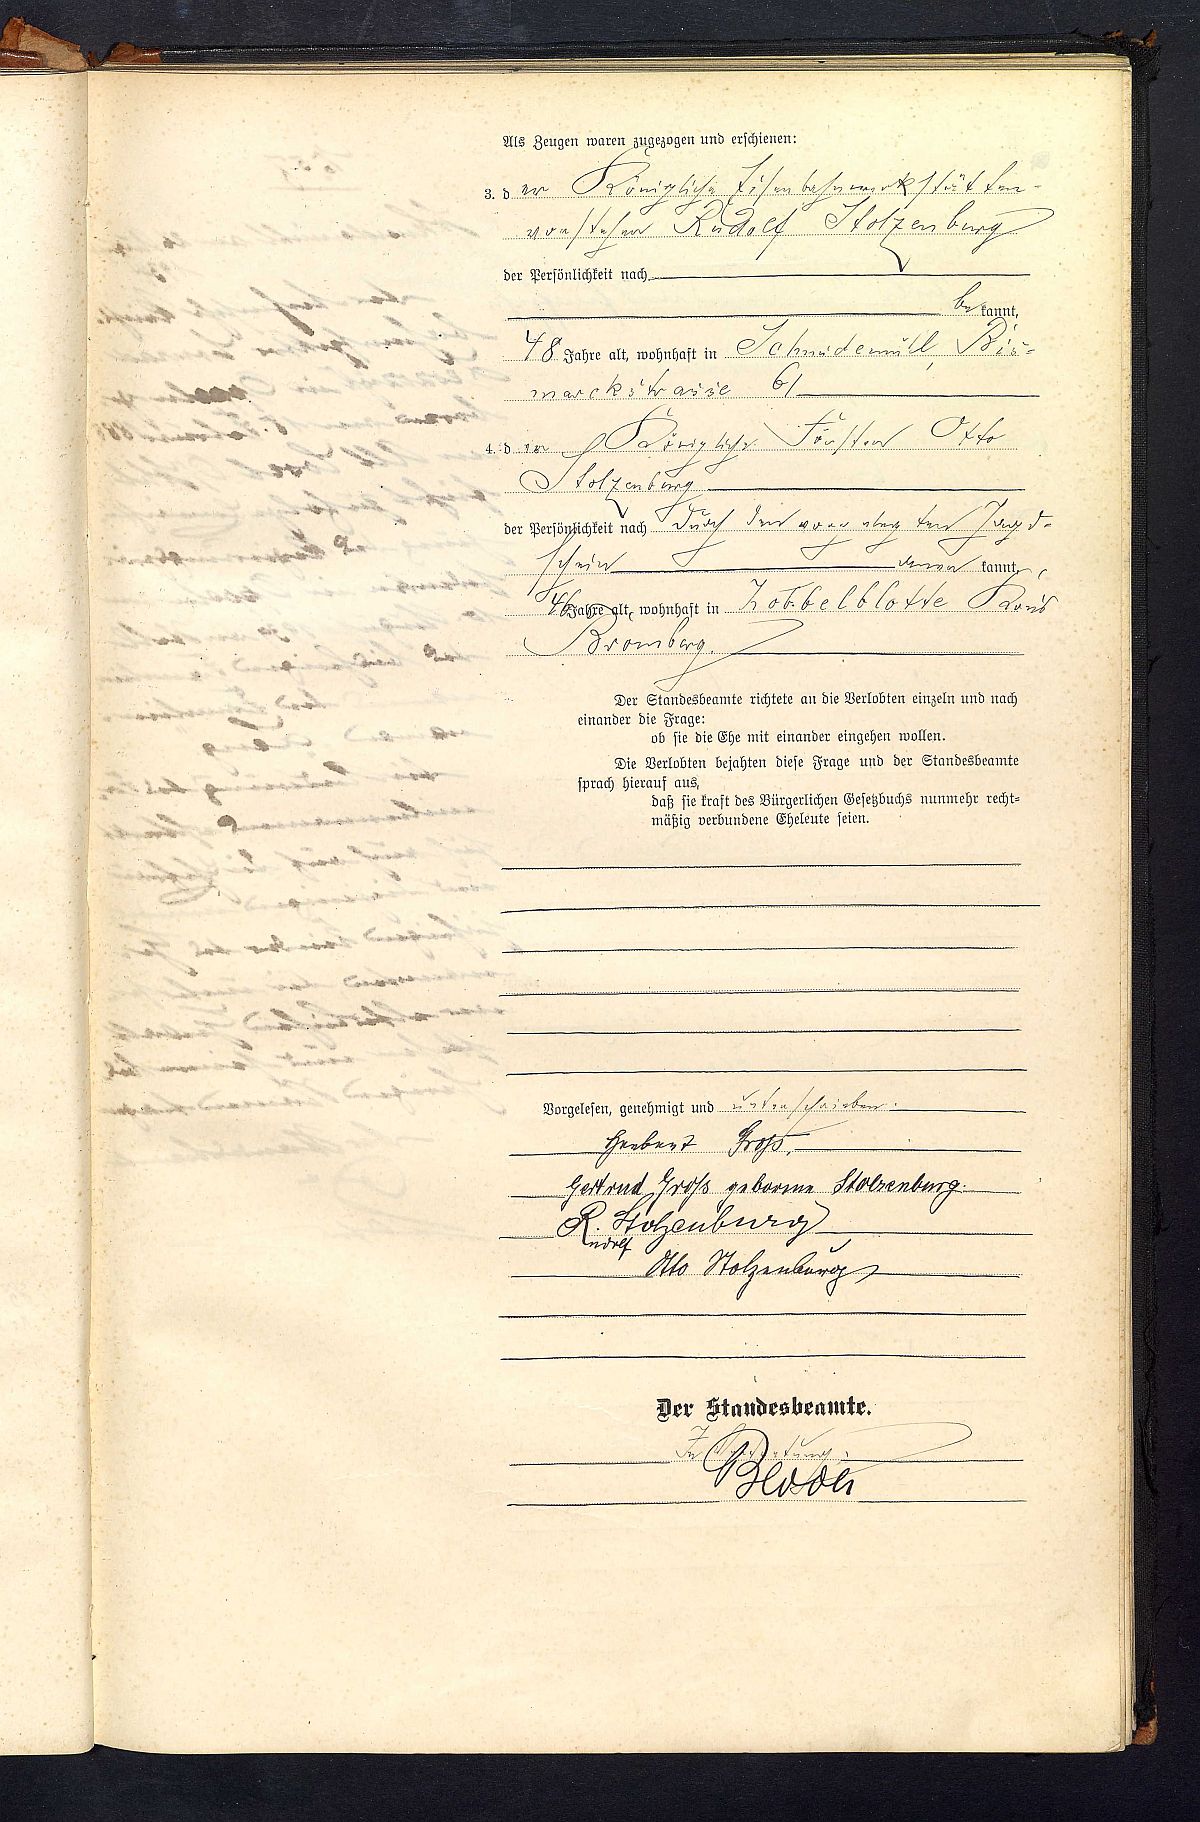 Als Zeugen waren zugezogen und erschienen:
3. d er Königliche Eisenbahnwerkstätten-
vorsteher Rudolf Stolzenburg
der Persönlichkeit nach
be kannt,
48 Jahre alt, wohnhaft in Schneidemühl, Bis-
marckstrasse 61
4. d er Königliche Förster Otto
Stolzenburg
der Persönlichkeit nach durch den vorgelegten Jagd-
schein aner kannt,
46 Jahre alt, wohnhaft in Kreis
Bromberg.
Der Standesbeamte richtete an die Verlobten einzeln und nach
einander die Frage:
ob sie die Ehe mit einander eingehen wollen.
Die Verlobten bejahten diese Frage und der Standesbeamte
sprach hierauf aus,
daß sie kraft des Bürgerlichen Gesetzbuchs nunmehr recht-
mäßig verbundene Eheleute seien.
Vorgelesen, genehmigt und unterschrieben.
Herbert Groß.
Gertrud Groß geborene Stolzenburg.
R. Stolzenburg
Rudolf
Otto Stolzenburg
Der Standesbeamte.
In Vertretung: